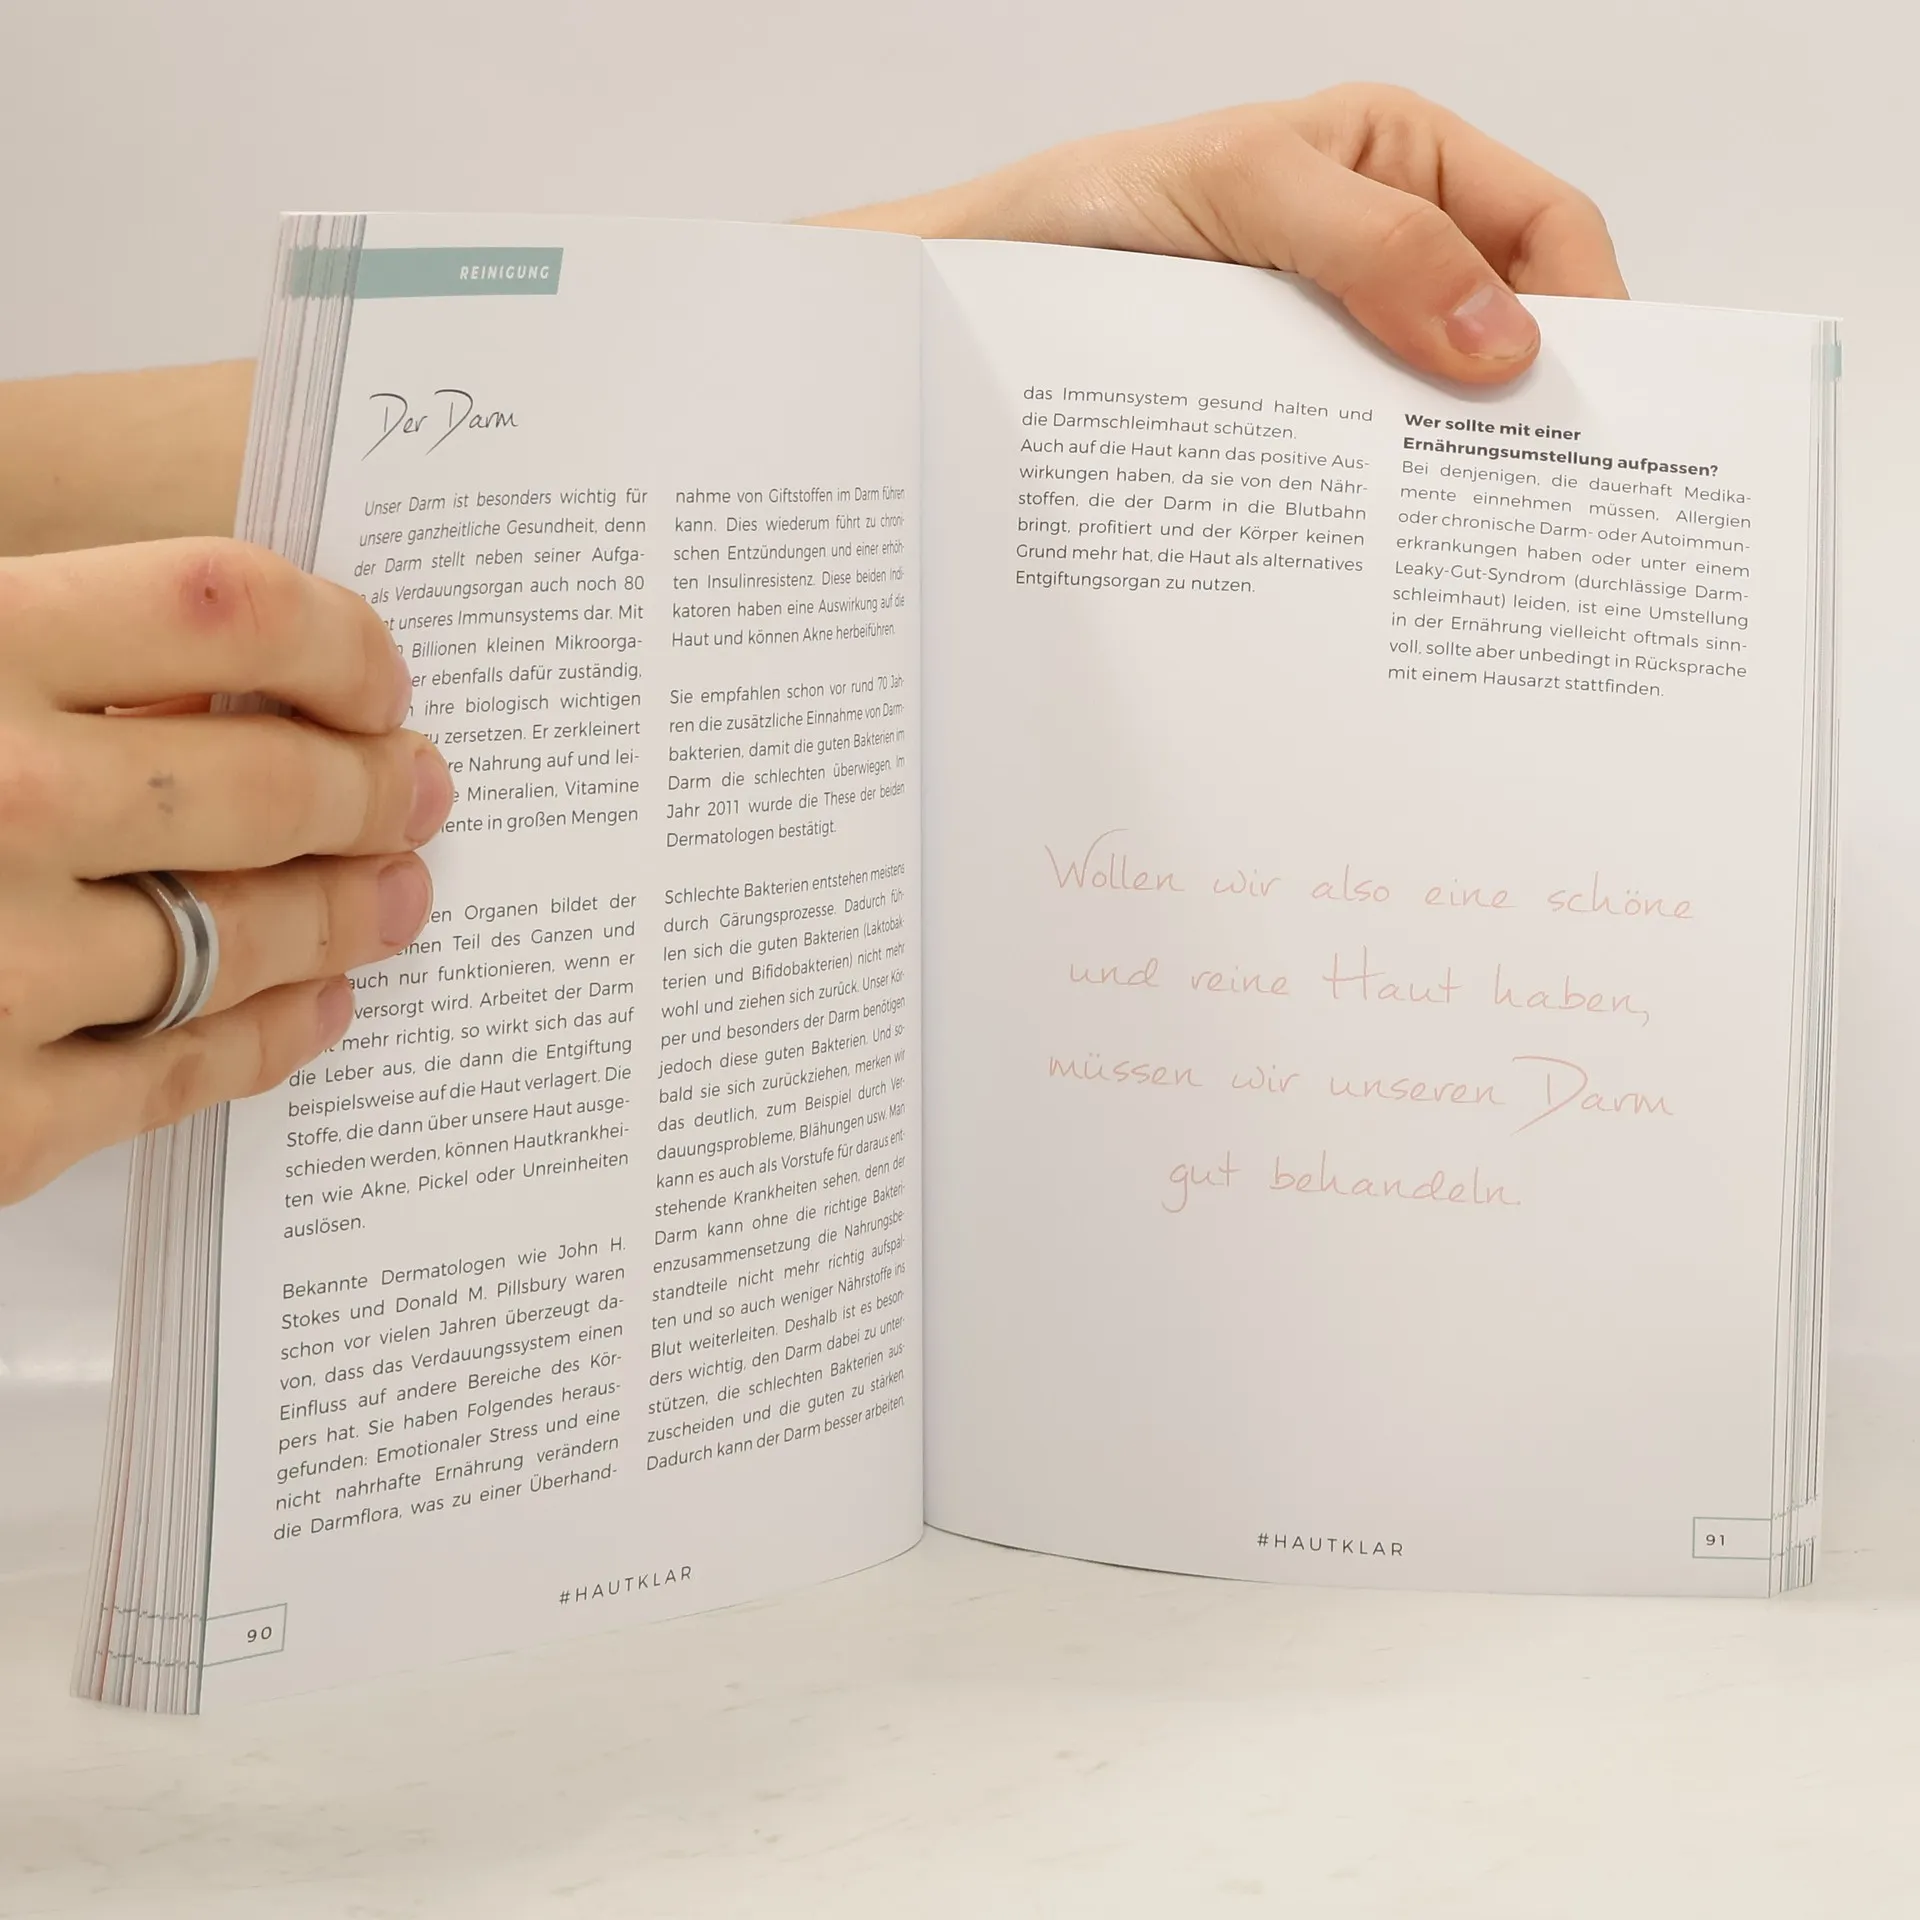 REINIGUNG
Der Darm
Unser Darm ist besonders wichtig für
unsere ganzheitliche Gesundheit, denn
der Darm stellt neben seiner Aufga-
als Verdauungsorgan auch noch 80
unseres Immunsystems dar. Mit
Billionen kleinen Mikroorga-
ebenfalls dafür zuständig,
ihre biologisch wichtigen
zersetzen. Er zerkleinert
Nahrung auf und lei-
Mineralien, Vitamine
in großen Mengen
Organen bildet der
Teil des Ganzen und
auch nur funktionieren, wenn er
versorgt wird. Arbeitet der Darm
mehr richtig, so wirkt sich das auf
die Leber aus, die dann die Entgiftung
beispielsweise auf die Haut verlagert. Die
Stoffe, die dann über unsere Haut ausge-
schieden werden, können Hautkrankhei-
ten wie Akne, Pickel oder Unreinheiten
auslösen.
Bekannte Dermatologen wie John H.
Stokes und Donald M. Pillsbury waren
schon vor vielen Jahren überzeugt da-
von, dass das Verdauungssystem einen
Einfluss auf andere Bereiche des Kör-
pers hat. Sie haben Folgendes heraus-
gefunden: Emotionaler Stress und eine
nicht nahrhafte Ernährung verändern
die Darmflora, was zu einer Überhand-
nahme von Giftstoffen im Darm führen
kann. Dies wiederum führt zu chroni-
schen Entzündungen und einer erhöh-
ten Insulinresistenz. Diese beiden Indi-
katoren haben eine Auswirkung auf die
Haut und können Akne herbeiführen.
Sie empfahlen schon vor rund 70 Jah-
ren die zusätzliche Einnahme von Darm-
bakterien, damit die guten Bakterien im
Darm die schlechten überwiegen. Im
Jahr 2011 wurde die These der beiden
Dermatologen bestätigt.
Schlechte Bakterien entstehen meistens
durch Gärungsprozesse. Dadurch füh-
len sich die guten Bakterien (Laktobak-
terien und Bifidobakterien) nicht mehr
wohl und ziehen sich zurück. Unser Kör-
per und besonders der Darm benötigen
jedoch diese guten Bakterien. Und so-
bald sie sich zurückziehen, merken wir
das deutlich, zum Beispiel durch Ver-
dauungsprobleme, Blähungen usw. Man
kann es auch als Vorstufe für daraus ent-
stehende Krankheiten sehen, denn der
Darm kann ohne die richtige Bakteri-
enzusammensetzung die Nahrungsbe-
standteile nicht mehr richtig aufspal-
ten und so auch weniger Nährstoffe ins
Blut weiterleiten. Deshalb ist es beson-
ders wichtig, den Darm dabei zu unter-
stützen, die schlechten Bakterien aus-
zuscheiden und die guten zu stärken.
Dadurch kann der Darm besser arbeiten,
#HAUTKLAR
90
das Immunsystem gesund halten und
die Darmschleimhaut schützen.
Auch auf die Haut kann das positive Aus-
wirkungen haben, da sie von den Nähr-
stoffen, die der Darm in die Blutbahn
bringt, profitiert und der Körper keinen
Grund mehr hat, die Haut als alternatives
Entgiftungsorgan zu nutzen.
Wer sollte mit einer
Ernährungsumstellung aufpassen?
Bei denjenigen, die dauerhaft Medika-
mente einnehmen müssen, Allergien
oder chronische Darm- oder Autoimmun-
erkrankungen haben oder unter einem
Leaky-Gut-Syndrom (durchlässige Darm-
schleimhaut) leiden, ist eine Umstellung
in der Ernährung vielleicht oftmals sinn-
voll, sollte aber unbedingt in Rücksprache
mit einem Hausarzt stattfinden.
Wollen wir also eine schöne
und reine Haut haben,
müssen wir unseren Darm
gut behandeln.
#HAUTKLAR
91